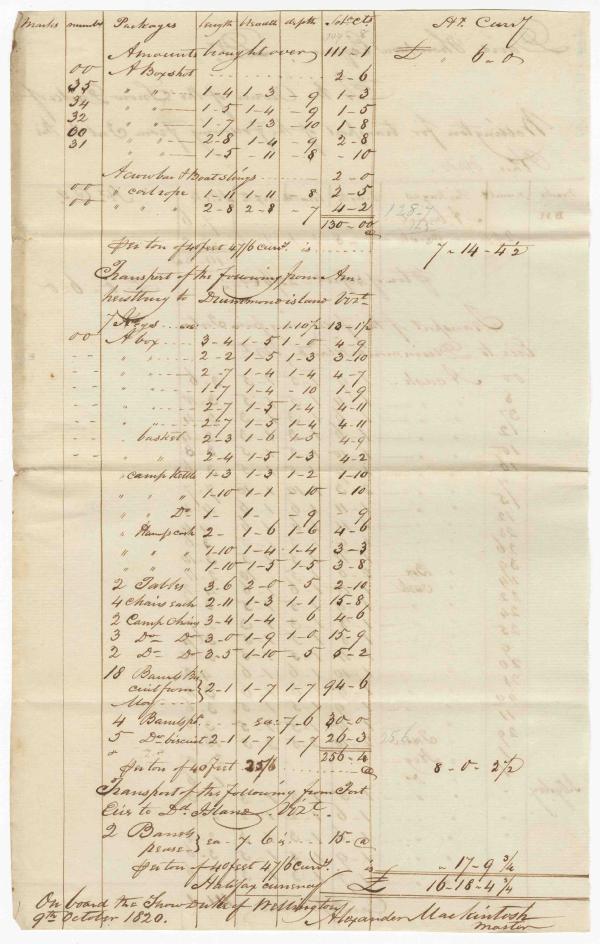 Marks numbr Packages length breadth depth Sob. Cts. Hx. Curry
Amounts brought over 111-1 £ " 6-0
00 A Box shot 2-6
35 " " 1-4 1-3 - 9 1-3
34 " " 1-5 1-4 - 9 1-5
32 " " 1-7 1-3 - 10 1-8
00 " " 2-8 1-4 - 9 2-8
31 " " 1-5 - 11 - 8 - 10
A crowbar & Boat slings 2-0
00 " coil rope 1-11 1-11 8 2-5
00 " " " 2-8 2-8 - 7 4-2 128-7
130-00
⅌er ton of 40 feet 47/6 curry. is 7-14-4½
Transport of the following from Am
herstburg to Drummond island Vizt.
7 Kegs ea 1-10½ 13-1½
00 A box 3-4 1-5 1-0 4-9
- - " " 2-2 1-5 1-3 3-10
- - " " 2-7 1-4 1-4 4-7
- - " " 1-7 1-4 - 10 1-9
- - " " 2-7 1-5 1-4 4-11
- - " " 2-7 1-5 1-4 4-11
- - " basket 2-3 1-6 1-5 4-9
- - " " 2-4 1-5 1-3 4-2
" camp kettle 1-3 1-3 1-2 1-10
" " " 1-10 1-1 10 - 10
" " Do 1- 1- - 9 - 9
" Hamp cook 2- 1-6 1-6 4-6
" " " 1-10 1-4 1-4 3-3
" " " 1-10 1-5 1-5 3-8
2 Tables 3-6 2-0 - 5 2-10
4 chairs each 2-11 1-3 1-1 15-8
2 Camp Chairs 3-4 1-4 - 6 4-6
3 Do Do 3-0 1-9 1-0 15-9
2 Do Do 3-5 1-10 - 5 5-2
18 Barrels Bis
cuit from } 2-1 1-7 1-7 94-6
Moy
4 Barrels pk. ea: 7-6 30-0
5 Do biscuit 2-1 1-7 1-7 26-3 256
256-4
⅌er ton of 40 feet 25/6 8-0-2½
Transport of the following from Fort
Erie to Dd. Island Vizt.
2 Barrels
pease } ea 7-6 is 15-@
⅌er ton of 40 feet 47/6 curry. is - 17-9¾
Halifax currency £ 16-18-4¾
On board the Snow Duke of Wellington
9th October 1820.
Alexander Mackintosh
master